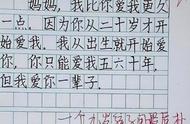 妈妈，我比你爱我更久
一点，因为你从二十岁才开
始爱我。我从出生就开始爱
你，你只能爱我五六十年，
但我爱你一辈子。
一个九岁